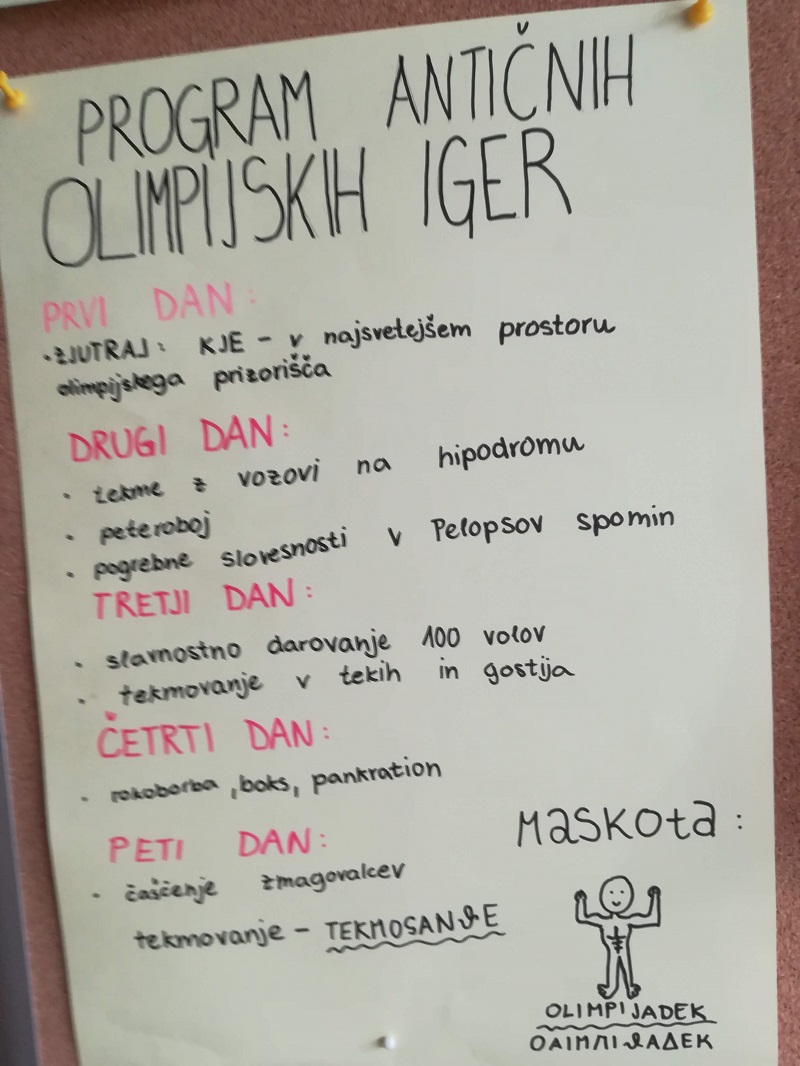 PROGRAM ANTIČNIH
OLIMPIJSKIH IGER
PRVI DAN:
• ZJUTRAJ: KJE - v najsvetejšem prostoru
olimpijskega prizorišča
DRUGI DAN:
• tekme z vozovi na hipodromu
• peteroboj
• pogrebne slovesnosti v Pelopsov spomin
TRETJI DAN:
• slavnostno darovanje 100 volov
• tekmovanje v tekih in gostija
ČETRTI DAN:
• rokoborba, boks, pankration
PETI DAN:
• čaščenje zmagovalcev
tekmovanje -
MASKOta:
OLIMPIJADEK